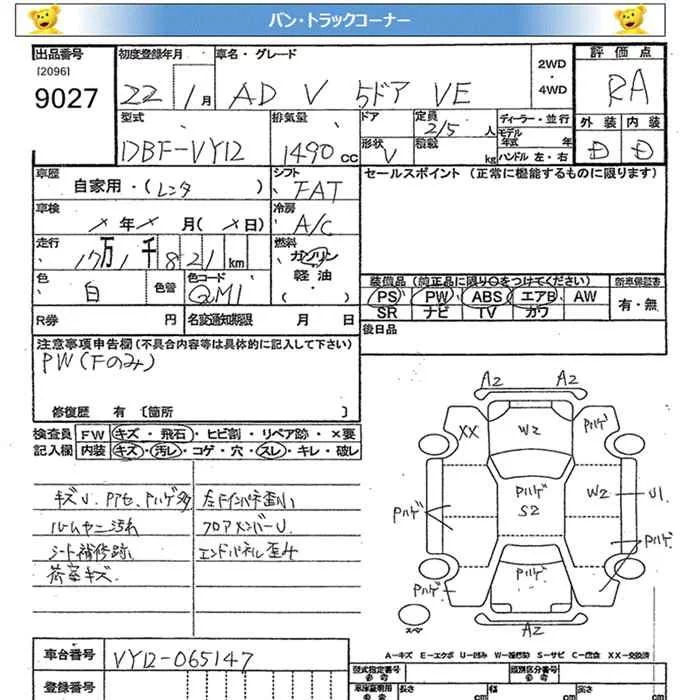 バン・トラックコーナー
出品番号 初度登録年月 車名・グレード 2WD・4WD 評価点
[2096]
9027 22 1月 AD V 5ドア VE RA
型式 排気量 ドア 定員 ディーラー・並行 外装 内装
DBF-VY12 1490cc 形状 V 2/5人 積載 kg モデル年式 年 ハンドル 左・右 D D
車歴 自家用・(レンタ ) シフト FAT セールスポイント (正常に機能するものに限ります)
車検 ×年×月(×日) 冷房 A/C
走行 17万1千821km 燃料 ガソリン
軽油
( )
色 白 色替 色コード QM1 装備品 (純正品に限り○をつけてください) 新車保証書
PS PW ABS エアB AW 有・無
SR ナビ TV カワ
R券 円 名変通知期限 月 日 後日品
注意事項申告欄 (不具合内容等は具体的に記入して下さい)
PW(Fのみ)
修復歴 有 [箇所 ]
検査員 FW キズ・飛石・ヒビ割・リペア跡・×要
記入欄 内装 キズ・汚レ・コゲ・穴・スレ・キレ・破レ
キズU.Pアセ.Pハゲ多 左Fインパネ歪り
ルームヤニ汚れ フロアメンバーU
シート補修跡 エンドパネル歪み
荷室キズ
A2 A2
XX W2 Pハゲ
Pハゲ Pハゲ S2 W2 U1
Pハゲ
Pハゲ Pハゲ Pハゲ
スペア A2
A-キズ E-エクボ U-凹み W-補修跡 S-サビ C-腐食 XX-交換済
車台番号 VY12-065147 型式指定番号 類別区分番号
参考 参考
登録番号 車庫証明用 長さ cm 幅 cm 高さ cm